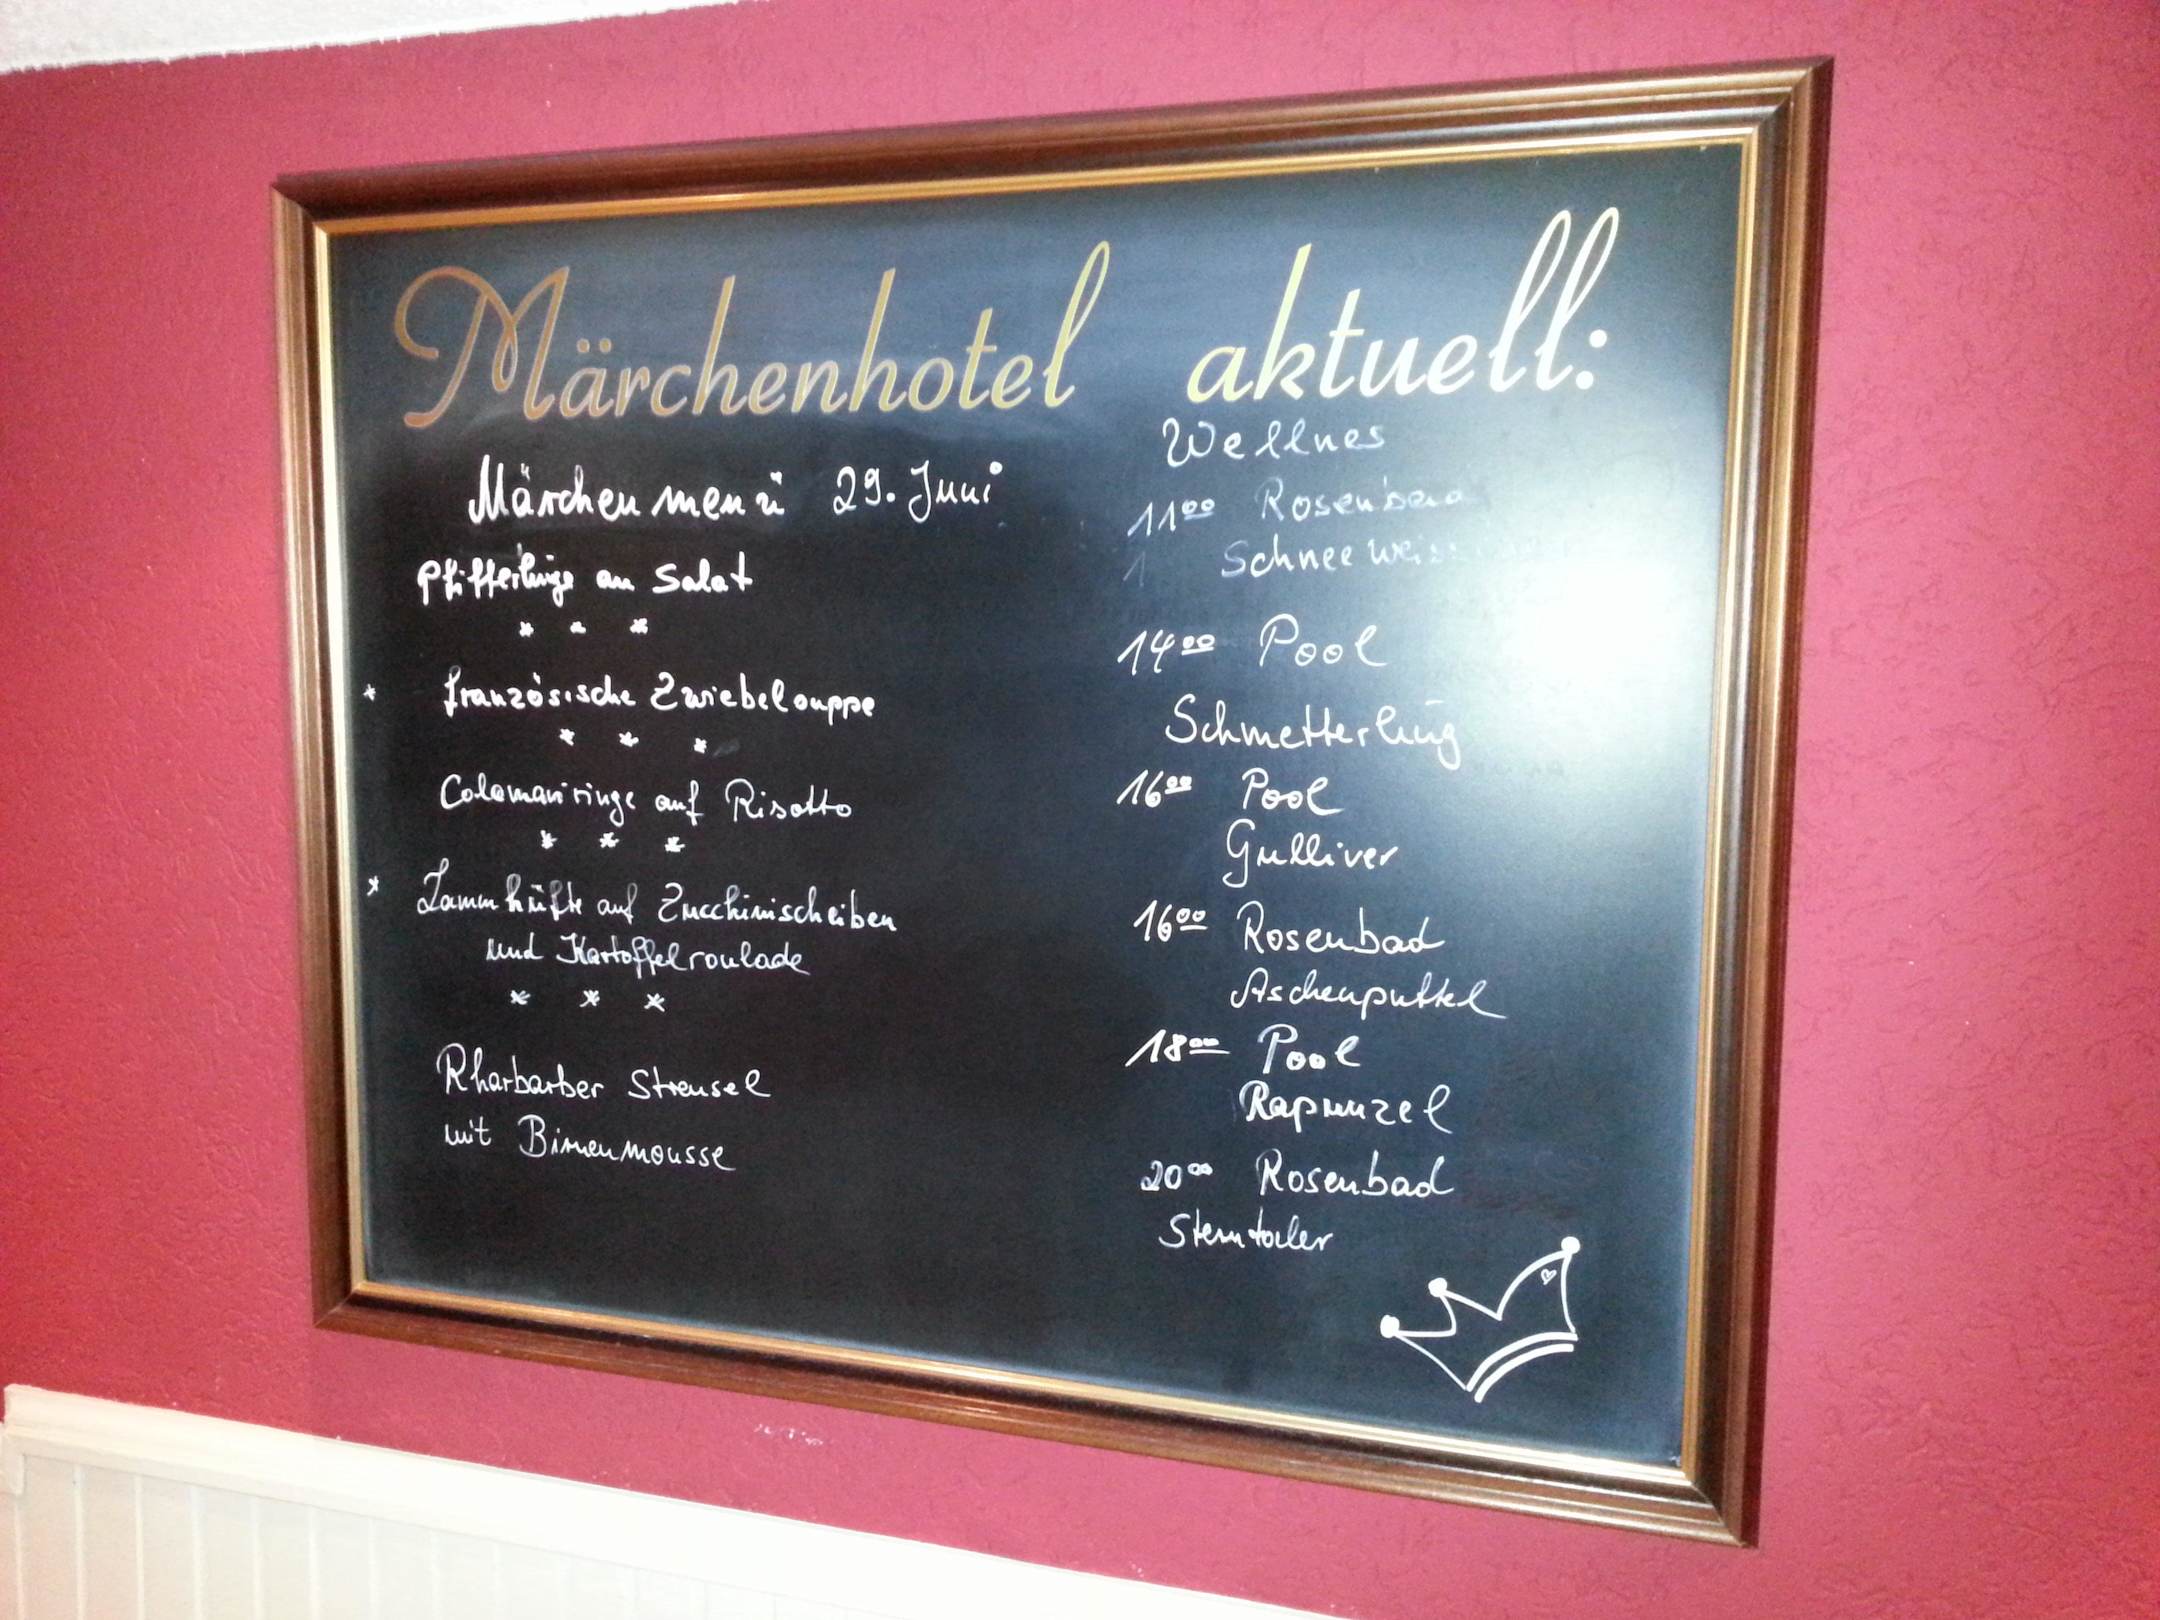 Märchenhotel aktuell:
Märchenmenü 29. Juni
Pfifferlinge an Salat
* * *
* französische Zwiebelsuppe
* * *
Calamariringe auf Risotto
* * *
* Lammhüfte auf Zucchinischeiben
und Kartoffelroulade
* * *
Rharbarber Streusel
mit Birnenmousse
Wellnes
1100 Rosenbad
1400 Pool
Schmetterling
1600 Pool
Gulliver
1600 Rosenbad
Aschenputtel
1800 Pool
Rapunzel
2000 Rosenbad
Sterntaler